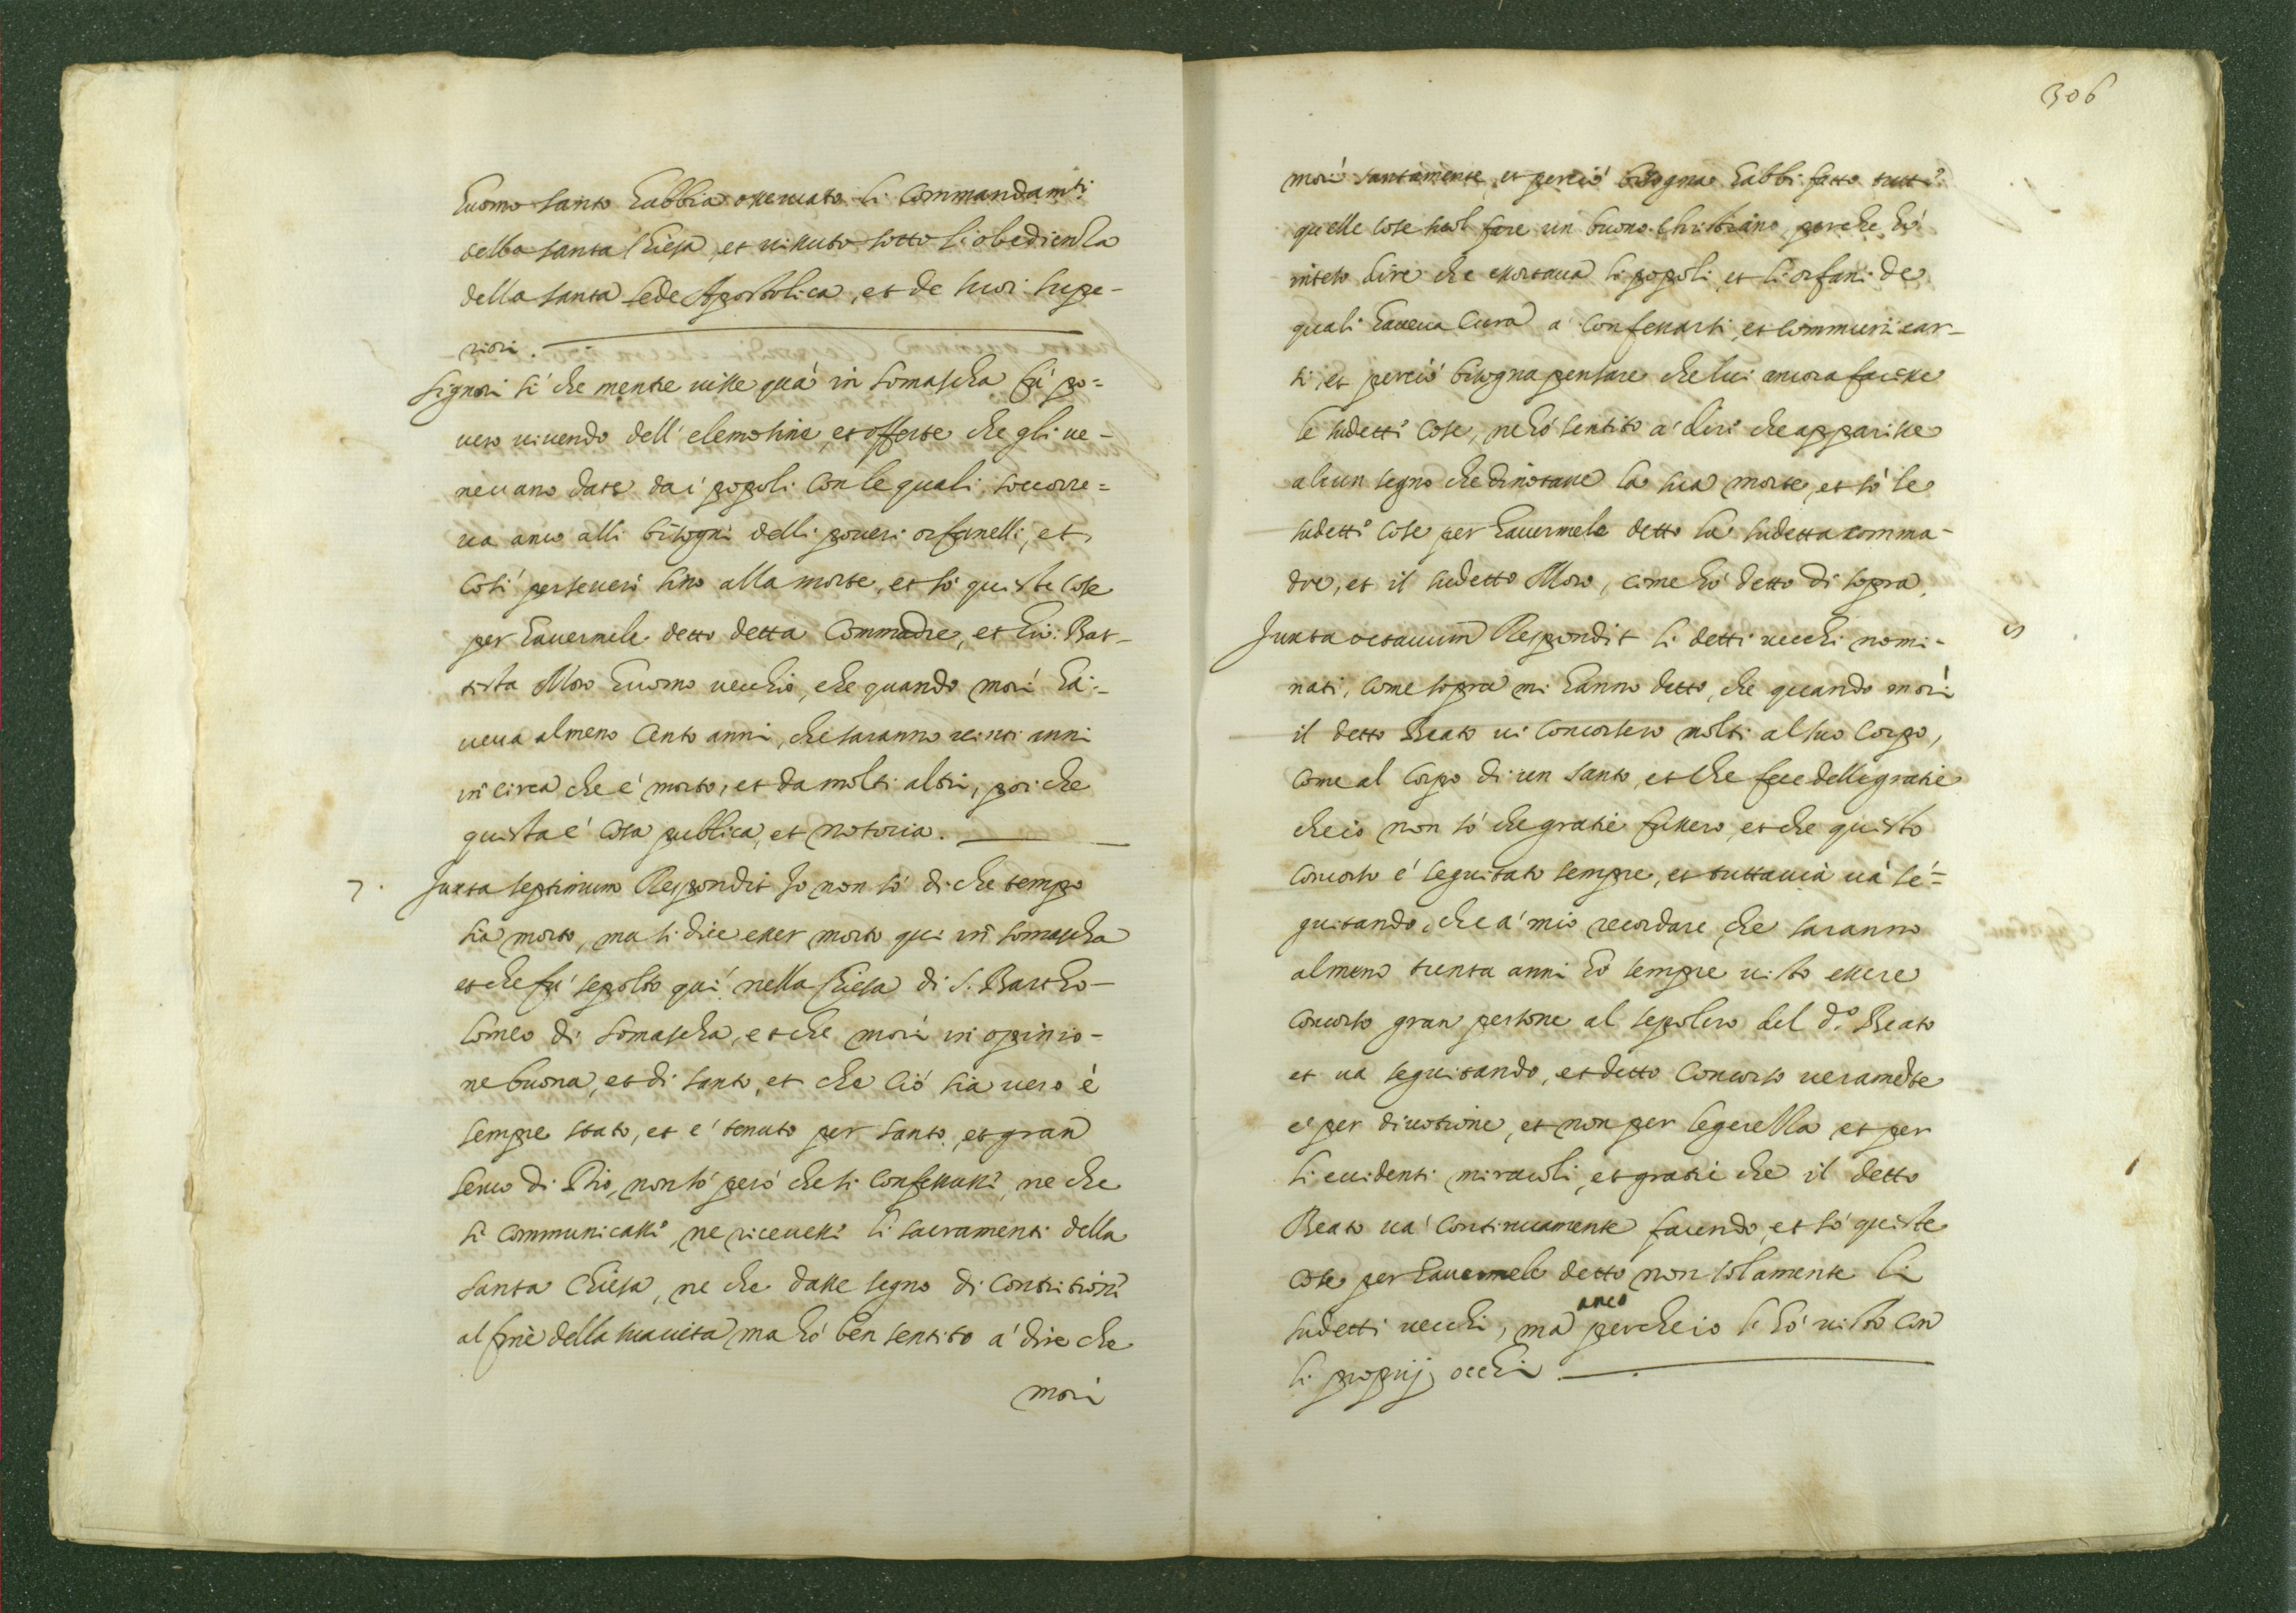 huomo santo habbia osseruato li commandamti
della santa Chiesa, et uissuto sotto l'obedienza
della santa sede Apostolica, et de suoi supe-
riori.
signori si che mentre uisse quà in Somascha fù po=
uero uiuendo dell'elemosine, et offerte che gli ue-
neuano date dai popoli con le quali soccorre=
ua anco alli bisogni delli poueri orfanelli, et
così perseuerò sino alla morte, et sò queste cose
per hauermele detto detta Commadre, et Gio: Bat-
tista Moro huomo uecchio, che quando morì ha-
ueua almeno cento anni, che saranno uinti anni
in circa che è morto, et da molti altri, poi che
questa è cosa publica, et notoria.
7. Juxta septimum Respondit Io non sò di che tempo
sia morto, ma si dice esser morto qui in Somascha
et che fù sepolto quì nella Chiesa di S. Bartho-
lomeo di Somascha, et che morì in opinio-
ne buona, et di santo, et che ciò sia uero è
sempre stato, et è tenuto per santo, et gran
seruo di Dio, non sò però che si confessasse, ne che
si communicasse, ne riceuesse li sacramenti della
santa Chiesa, ne che dasse segno di contritione
al fine della sua uita ma hò ben sentito à dire che
morì
306
morì santamente, et perciò bisogna habbi fatto tutte
quelle cose suol fare un buono Christiano, perche hò
inteso dire che essortaua li popoli, et li orfani de
quali haueua cura à confessarsi, et communicar-
si, et perciò bisogna pensare che lui ancora facesse
le sudette cose, ne hò sentito à dire che apparisse
alcun segno che dinotasse la sua morte, et sò le
sudette cose per hauermele detto la sudetta comma-
dre, et il sudetto Moro, come hò detto di sopra.
Juxta octauum Respondit li detti uecchi nomi-
nati, come sopra mi hanno detto, che quando morì
il detto Beato ui concorsero molti al suo corpo,
come al corpo di un santo, et che fece delle gratie
che io non sò che gratie fussero, et che questo
concorso è seguitato sempre, et tuttauia uà se=
guitando, che à mio recordare, che saranno
almeno trenta anni hò sempre uisto essere
concorso gran persone al sepolcro del d.o Beato
et ua seguitando, et detto concorso ueramẽte
è per diuotione, et non per legerezza et per
li euidenti miracoli, et gratie che il detto
Beato uà continuamente facendo, et sò queste
cose per hauermele detto non solamente li
sudetti uecchi, ma anco perche io le hò uisto con
li proprij occhi.